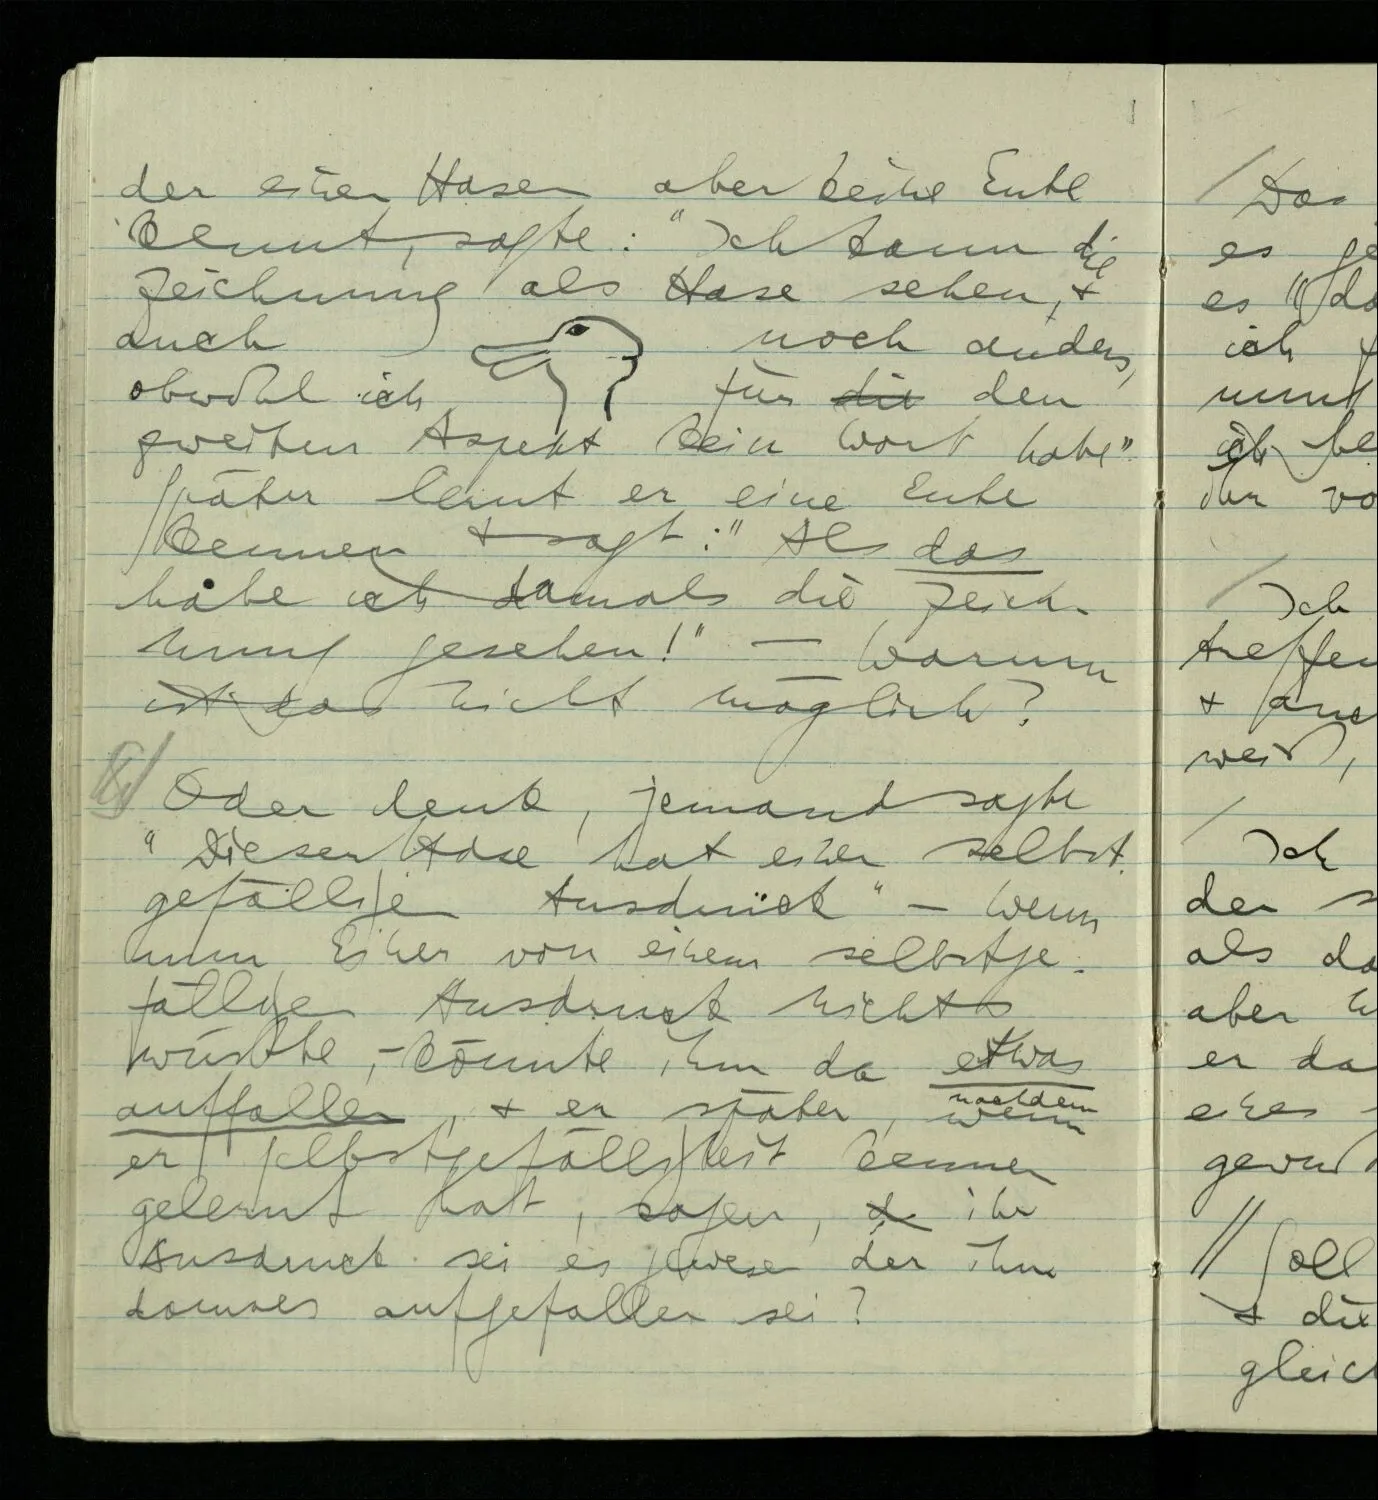 der einen Hasen aber keine Ente
kennt, sagte: "Ich kann die
Zeichnung als Hase sehen, +
auch noch anders,
obwohl ich für die den
zweiten Aspekt kein Wort habe"
Später lernt er eine Ente
kennen + sagt: "Als das
habe ich damals die Zeich-
nung gesehen!" — Warum
ist das nicht möglich?
Oder denk, jemand sagte
"Dieser Hase hat einen selbst-
gefälligen Ausdruck" – wenn
nun Einer von einem selbstge-
fälligen Ausdruck nichts
wüsste, – könnte ihm da etwas
auffallen, + er später, nachdem wenn
er Selbstgefälligkeit kennen
gelernt hat, sagen, ihr
Ausdruck sei es gewesen der ihm
damals aufgefallen sei?
/ Das
es ge
es
ich
nennt
ich be
ihr vo
/ Ich
treffen
+ auc
weiß,
/ Ich
der s
als da
aber
er da
eines
gewu
// Soll
+ die
gleich